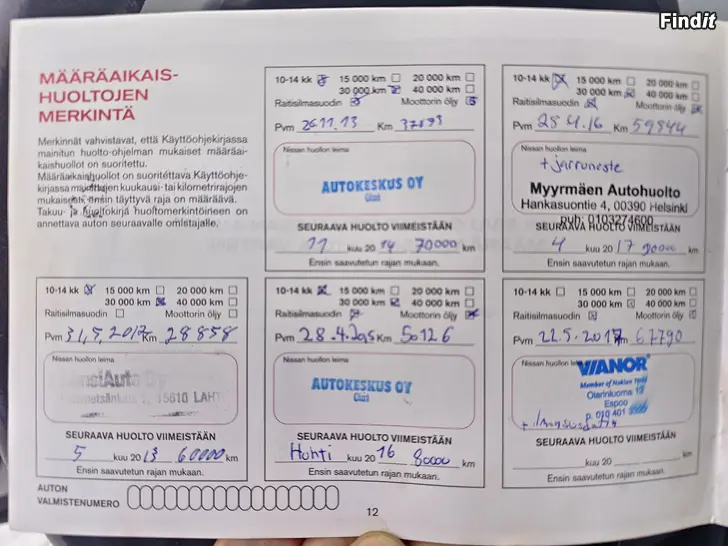 Findit
MÄÄRÄAIKAIS-
HUOLTOJEN
MERKINTÄ
Merkinnät vahvistavat, että Käyttöohjekirjassa
mainitun huolto-ohjelman mukaiset määräai-
kaishuollot on suoritettu.
Määräaikaishuollot on suoritettava Käyttöohje-
kirjassa mainittujen kuukausi- tai kilometrirajojen
mukaisesti, ensin täyttyvä raja on määräävä.
Takuu- ja huoltokirja huoltomerkintöineen on
annettava auton seuraavalle omistajalle.
10-14 kk 15 000 km 20 000 km
30 000 km 40 000 km
Raitisilmasuodin Moottorin öljy
Pvm 26.11.13 Km
Nissan huollon leima
AUTOKESKUS OY
SEURAAVA HUOLTO VIIMEISTÄÄN
11 kuu 20 14 70000 km
Ensin saavutetun rajan mukaan.
10-14 kk 15 000 km 20 000 km
30 000 km 40 000 km
Raitisilmasuodin Moottorin öljy
Pvm 28.4.16 Km 59844
Nissan huollon leima
+ jarruneste
Myyrmäen Autohuolto
Hankasuontie 4, 00390 Helsinki
puh: 0103274600
SEURAAVA HUOLTO VIIMEISTÄÄN
4 kuu 20 17 90000 km
Ensin saavutetun rajan mukaan.
10-14 kk 15 000 km 20 000 km
30 000 km 40 000 km
Raitisilmasuodin Moottorin öljy
Pvm 31.5.2012 Km 28858
Nissan huollon leima
15610 LAHTI
SEURAAVA HUOLTO VIIMEISTÄÄN
5 kuu 20 13 60000 km
Ensin saavutetun rajan mukaan.
10-14 kk 15 000 km 20 000 km
30 000 km 40 000 km
Raitisilmasuodin Moottorin öljy
Pvm 28.4.2015 Km 50126
Nissan huollon leima
AUTOKESKUS OY
SEURAAVA HUOLTO VIIMEISTÄÄN
Huhti kuu 20 16 80000 km
Ensin saavutetun rajan mukaan.
10-14 kk 15 000 km 20 000 km
30 000 km 40 000 km
Raitisilmasuodin Moottorin öljy
Pvm 22.5.2017 Km 67790
Nissan huollon leima
VIANOR
Member of Nokian Tyres
Olarinluoma
Espoo
p. 010 401
SEURAAVA HUOLTO VIIMEISTÄÄN
kuu 20 km
Ensin saavutetun rajan mukaan.
AUTON
VALMISTENUMERO
12